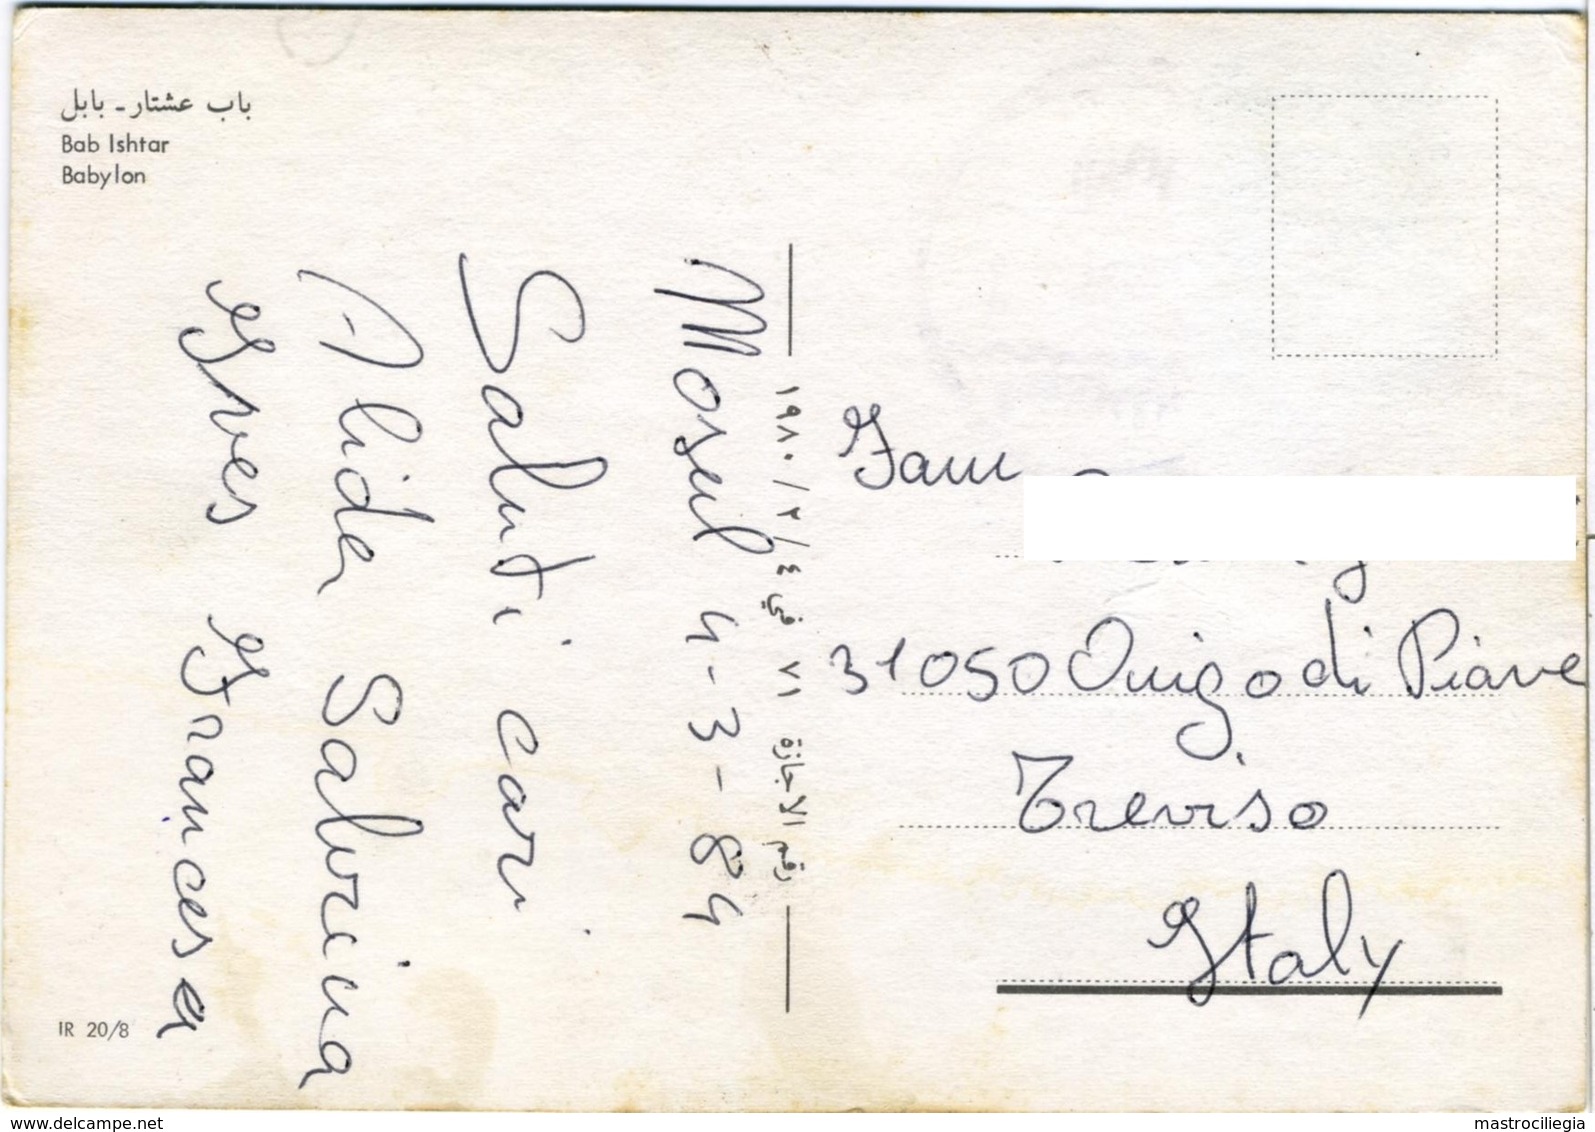 باب عشتار - بابل
Bab Ishtar
Babylon
Mosul 4-3-84
Saluti cari
Alida Salvina
Yves Francesa
رقم الاجازة ٧١ في ٤ / ٢ / ١٩٨٠
Fam
31050 Onigo di Piave
Treviso
Italy
IR 20/8
www.delcampe.net
mastrociliegia